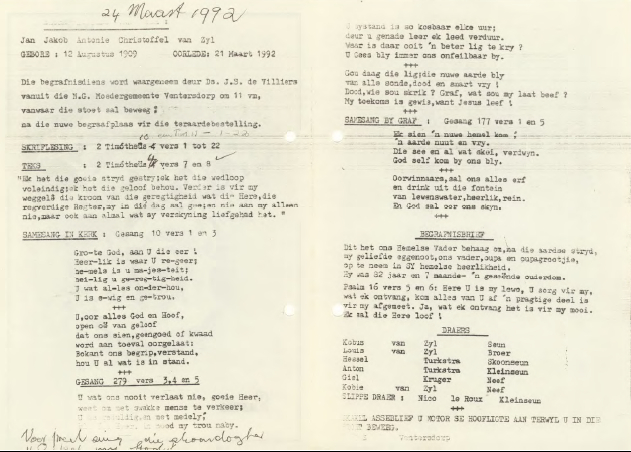 24 Maart 1992
Jan Jakob Antonie Christoffel van Zyl
GEBORE : 12 Augustus 1909 OORLEDE: 21 Maart 1992
Die begrafnisdiens word waargeneem deur Ds. J.S. de Villiers
vanuit die N.G. Moedergemeente Ventersdorp om 11 vm,
vanwaar die stoet sal beweeg
na die nuwe begraafplaas vir die teraardebestelling.
SKRIFLESING : 2 Timótheüs 4 vers 1 tot 22
TEKS : 2 Timótheüs 4 vers 7 en 8
"Ek het die goeie stryd gestry;ek het die wedloop
voleindig;ek het die geloof behou. Verder is vir my
weggelê die kroon van die geregtigheid wat die Here,die
regverdige Regter,my in dié dag sal gee;en nie aan my alleen
nie,maar ook aan almal wat sy verskyning liefgehad het. "
SAMESANG IN KERK : Gesang 10 vers 1 en 3
Gro-te God, aan U die eer !
Heer-lik is waar U re-geer;
he-mels is u ma-jes-teit;
hei-lig u ge-reg-tig-heid.
U wat al-les on-der-hou,
U is e-wig en ge-trou.
+++
U,oor alles God en Hoof,
open oë van geloof
dat ons sien,geengoed of kwaad
word aan toeval oorgelaat:
Bekant ons begrip,verstand,
hou U al wat is in stand.
+++
GESANG 279 vers 3,4 en 5
U wat ons nooit verlaat nie, goeie Heer,
weet om met swakke mense te verkeer;
my trou naby.
U bystand is so kosbaar elke uur;
deur u genade leer ek leed verduur.
Waar is daar ooit 'n beter lig te kry ?
U Gees bly immer ons onfeilbaar by.
+++
Gou daag die lig;die nuwe aarde bly
van alle sonde,dood en smart vry !
Dood,wie sou skrik ? Graf, wat sou my laat beef ?
My toekoms is gewis,want Jesus leef !
+++
SAMESANG BY GRAF : Gesang 177 vers 1 en 5
Ek sien 'n nuwe hemel kom
'n aarde nuut en vry.
Die see en al wat skei, verdwyn.
God self kom by ons bly.
+++
Oorwinnaars,sal ons alles erf
en drink uit die fontein
van lewenswater,heerlik,rein.
En God sal oor ons skyn.
+++
BEGRAFNISBRIEF
Dit het ons Hemelse Vader behaag om,na die aardse stryd,
my geliefde eggenoot,ons vader,oupa en oupagrootjie,
op te neem in SY hemelse heerlikheid.
Hy was 82 jaar en 7 maande- 'n geseënde ouderdom.
Psalm 16 vers 5 en 6: Here U is my lewe, U sorg vir my,
wat ek ontvang, kom alles van U af 'n pragtige deel is
vir my afgemeet. Ja, wat ek ontvang het is vir my mooi.
Ek sal die Here loof !
DRAERS
Kobus van Zyl Seun
Louis van Zyl Broer
Hessel Turkstra Skoonseun
Anton Turkstra Kleinseun
Gisl Kruger Neef
Kobie van Zyl Neef
SLIPPE DRAER : Nico le Roux Kleinseun
+++
ASSEBLIEF U MOTOR SE HOOFLIGTE AAN TERWYL U IN DIE
BEWEEG.
Ventersdorp